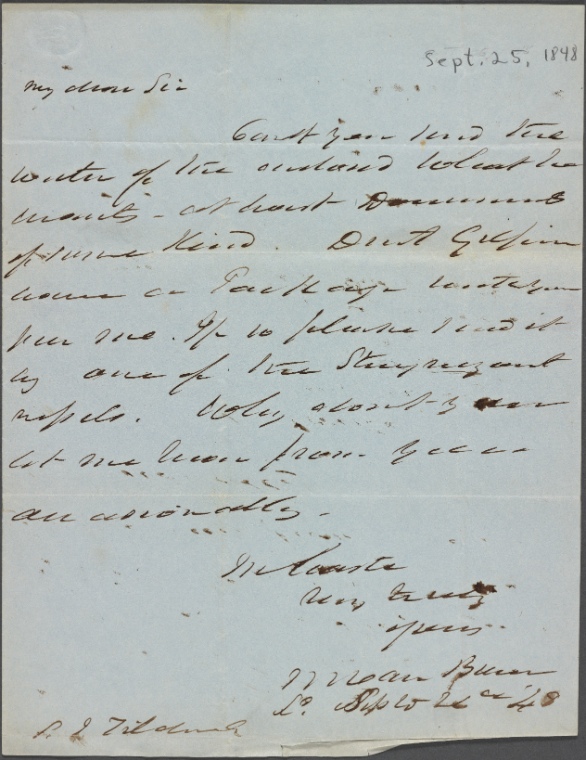 Sept. 25, 1848
My dear Sir
Cant you send the
writer of the enclosed what he
wants - at least Documents
of some kind. Dont Gilpin
leave a Package with you
for me. If so please send it
by one of the Stuyvesant
vessels. Why dont you
let me hear from you
occasionally.
In haste
very truly
yours
M Van Buren
Sept
S. J. Tilden